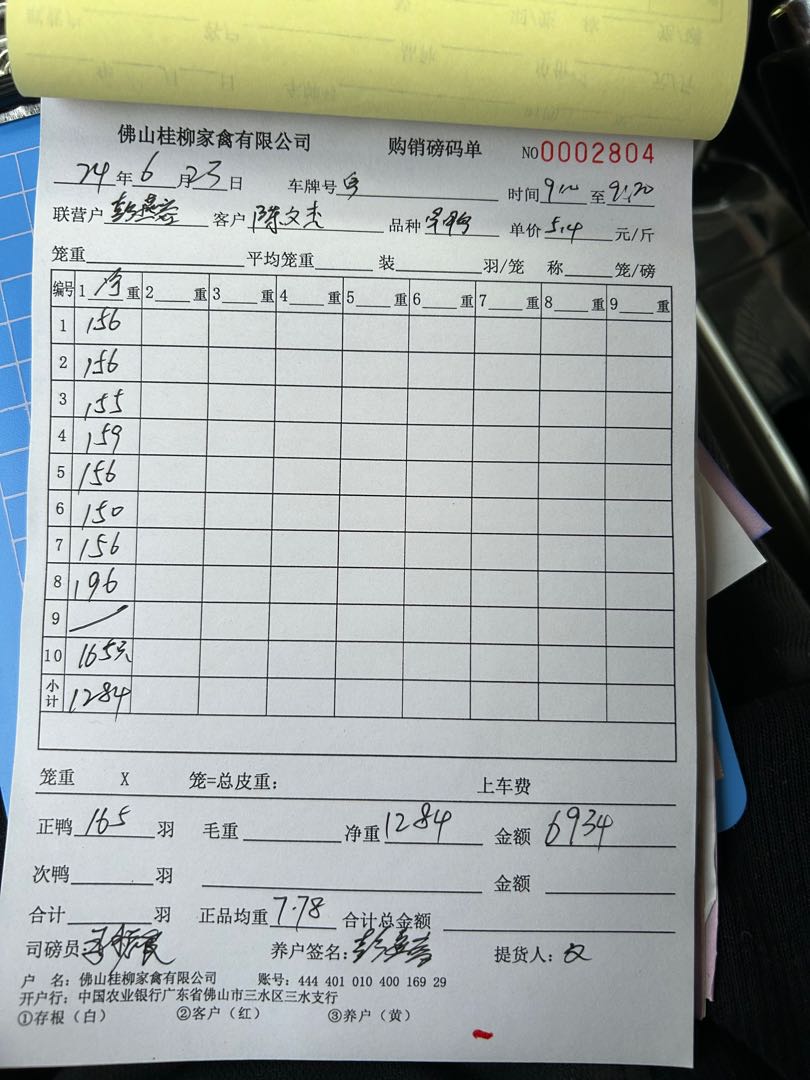 佛山桂柳家禽有限公司 购销磅码单 NO0002804
24年6月23日 车牌号 时间9:10至9:20
联营户彭燕容 客户陈文杰 品种 单价5.4元/斤
笼重 平均笼重 装 羽/笼 称 笼/磅
编号 1净重 2重 3重 4重 5重 6重 7重 8重 9重
1 156
2 156
3 155
4 159
5 156
6 150
7 156
8 196
9 /
10 165只
小计 1284
笼重 X 笼=总皮重: 上车费
正鸭165羽 毛重 净重1284 金额6934
次鸭 羽 金额
合计 羽 正品均重7.78 合计总金额
司磅员 养户签名:彭燕容 提货人:
户 名: 佛山桂柳家禽有限公司 账号: 444 401 010 400 169 29
开户行: 中国农业银行广东省佛山市三水区三水支行
①存根（白） ②客户（红） ③养户（黄）